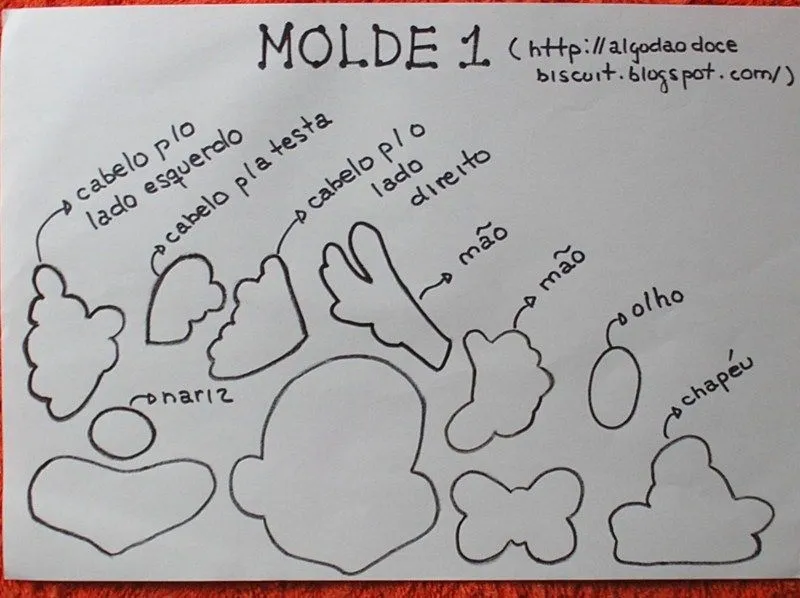 MOLDE 1 (http://algodaodoce
biscuit.blogspot.com/)
cabelo p/o
lado esquerdo
cabelo p/a testa
cabelo p/o
lado
direito
mão
mão
olho
nariz
chapéu